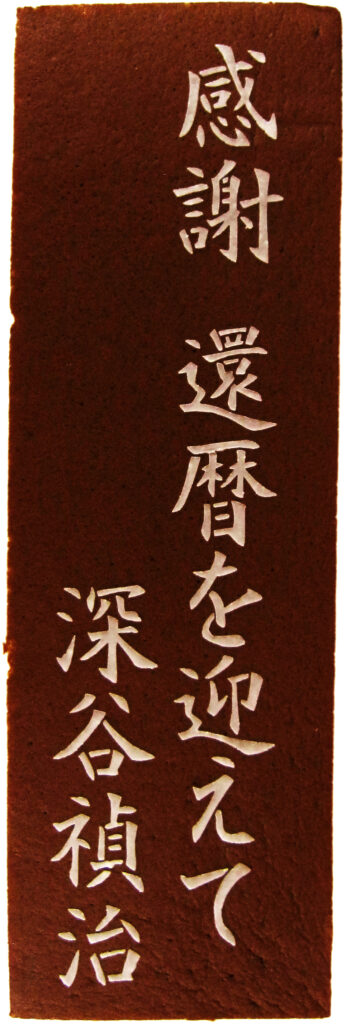 感謝　還暦を迎えて
深谷禎治